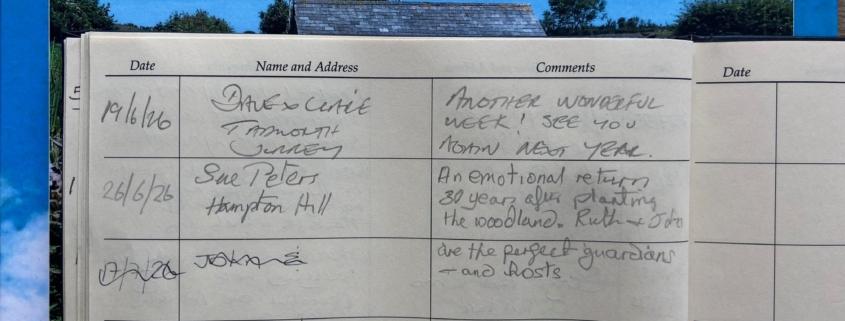 Date Name and Address Comments Date
19/6/26 DAVE & CLAIRE ANOTHER WONDERFUL
TADWORTH WEEK! SEE YOU
SURREY AGAIN NEXT YEAR.
26/6/26 Sue Peters An emotional return
Hampton Hill 30 years after planting
the woodland. Ruth + John
are the perfect guardians
- and hosts.